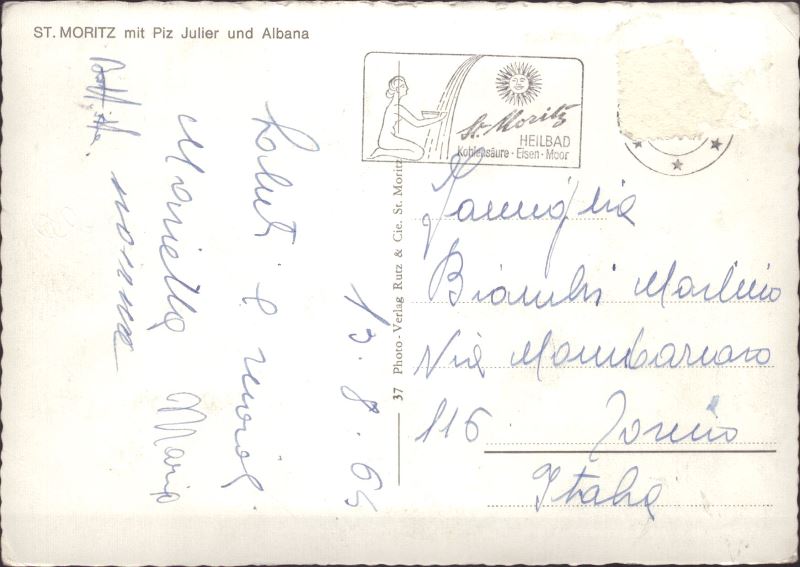 ST. MORITZ mit Piz Julier und Albana
St. Moritz
HEILBAD
Kohlensäure · Eisen · Moor
37 Photo-Verlag Rutz & Cie. St. Moritz
13.8.65
Saluti e
Mariella Mario
nonna
Famiglia
Bianchi
Via Mombarcaro
116 Torino
Italia